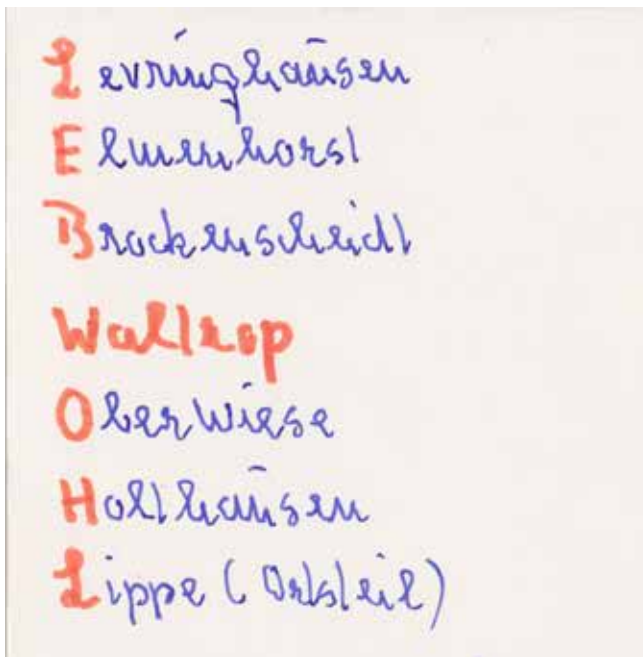 Levringhausen
Elmenhorst
Brockenscheidt
Waltrop
Oberwiese
Holthausen
Lippe (Ortsteil)